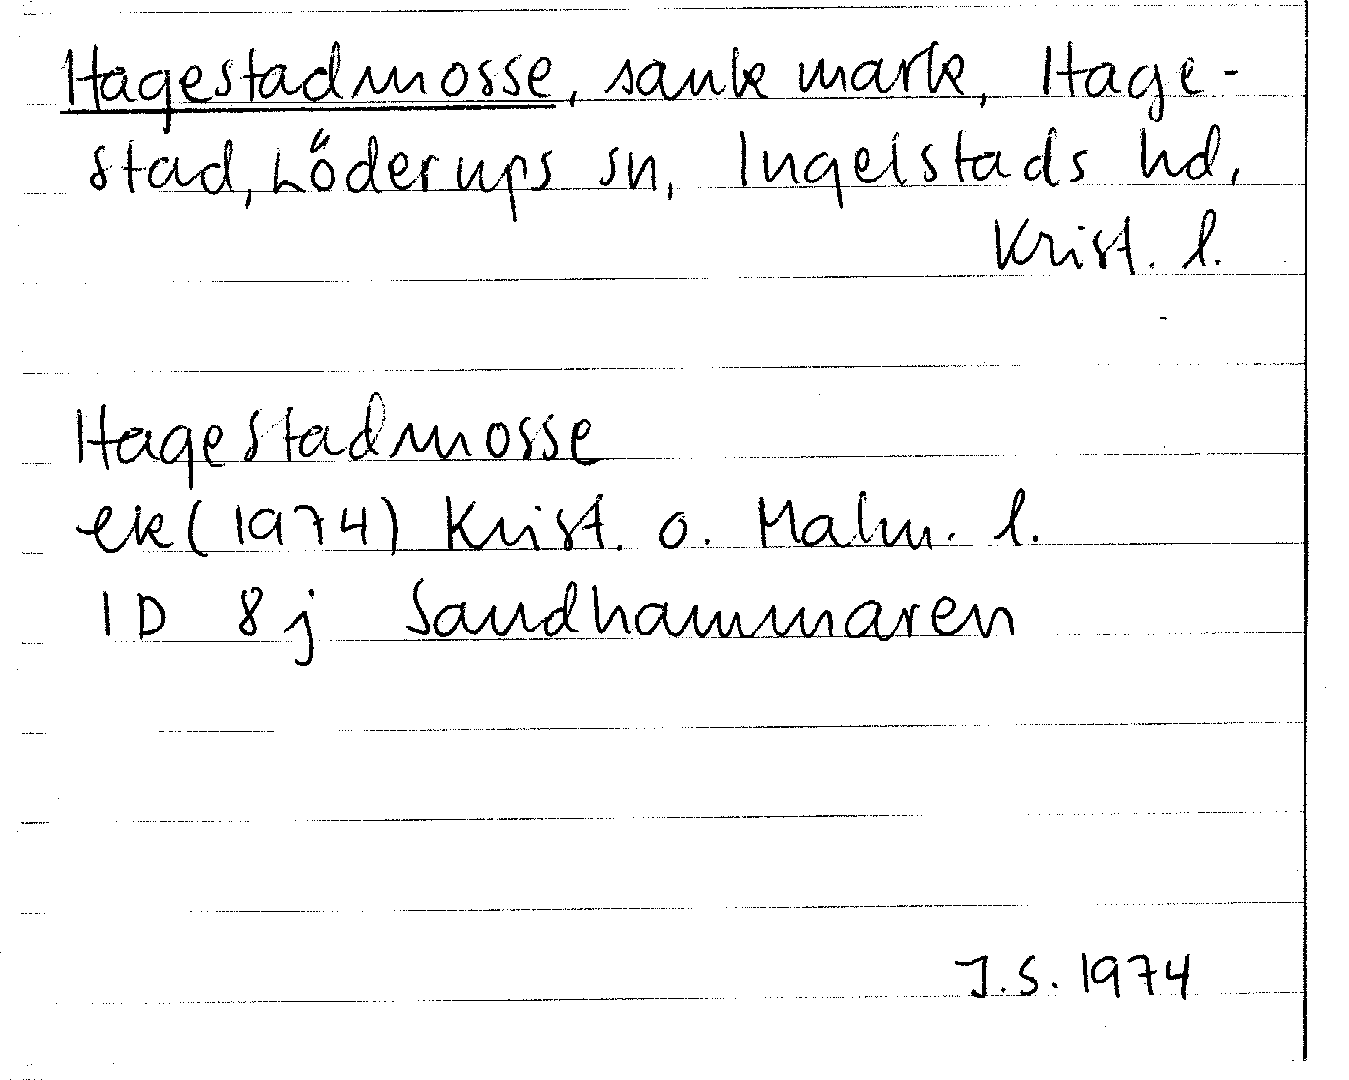 Hagestadmosse, sank mark, Hage-
stad, Löderups sn, Ingelstads hd,
Krist. l.
Hagestadmosse
ek (1974) Krist. o. Malm. l.
1D 8j Sandhammaren
J.S. 1974